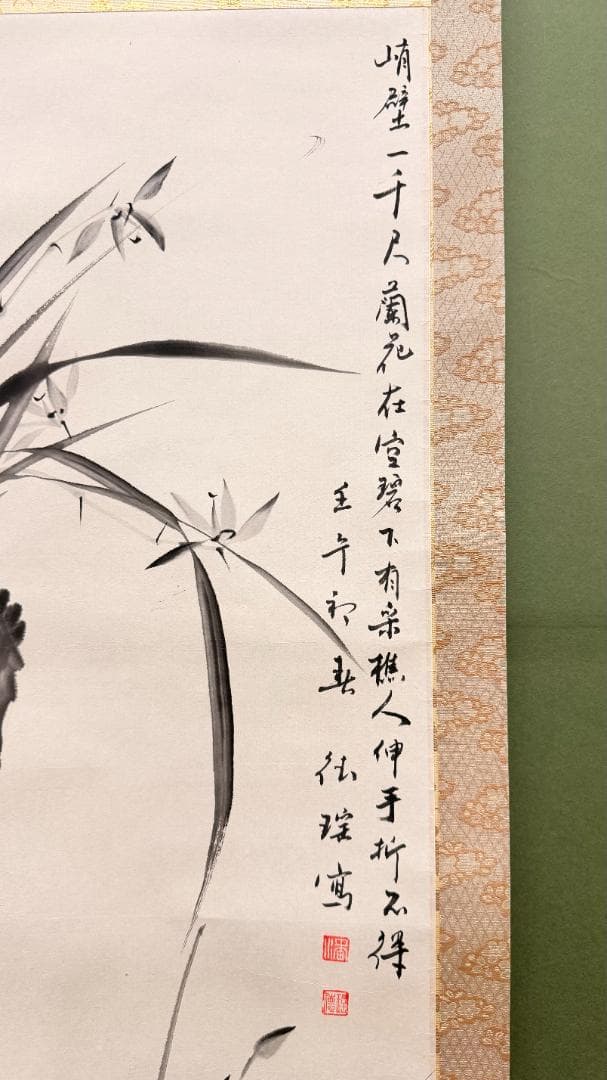 峭壁一千尺蘭花在空碧下有采樵人伸手折不得
壬午初春 德瑢寫